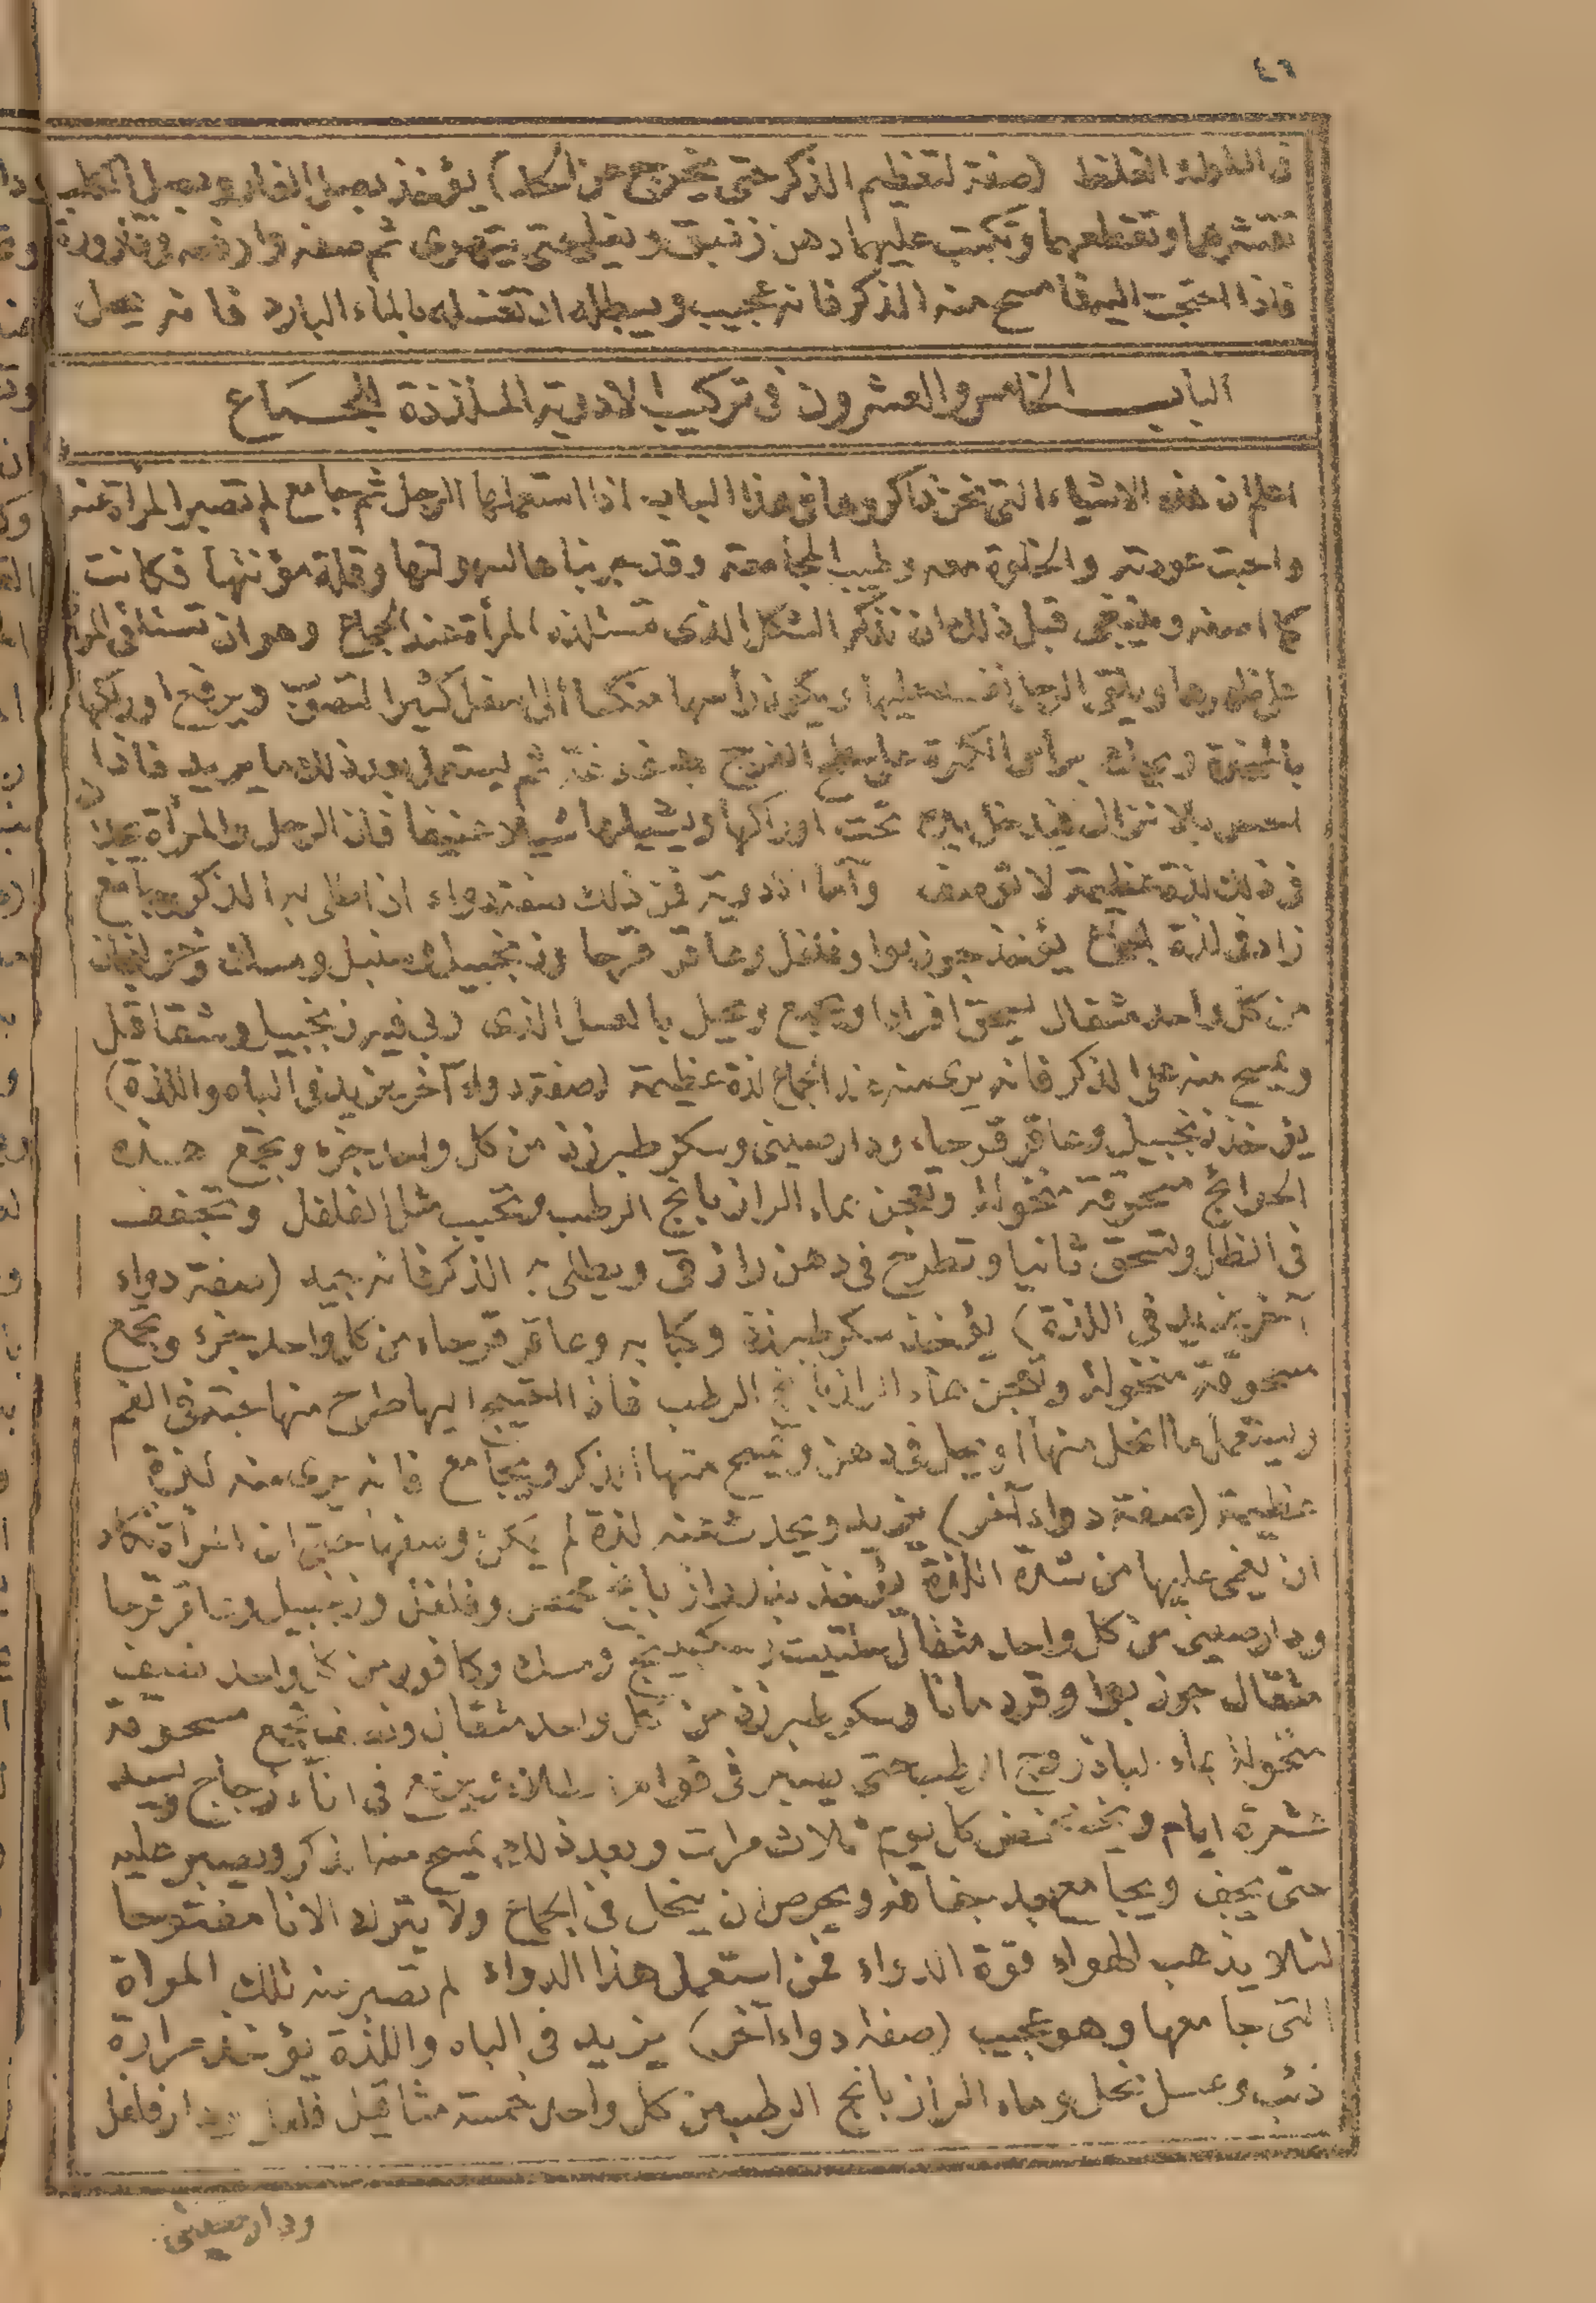 ٤٦
فى الطول والغلظ (صفة لتعظيم الذكر حتى يخرج عن) يؤخذ بصل الفار وبصل
تقشرهما وتقطعهما وتكبت عليهما دهن زنبق ويغلى حتى يتهرى ثم صفه وارفعه فى قارورة
فاذا احتجت اليه فامسح منه الذكر فانه عجيب ويبطله ان تغسله بالماء البارد فانه يبطل
الباب الخامس والعشرون فى تركيب الادوية الملذذة للجماع
اعلم ان هذه الاشياء التى نحن ذاكروها فى هذا الباب اذا استعملها الرجل ثم جامع لم تصبر المرأة عنه
واحبت عودته والخلوة معه وطيب المجامعة وقد جربناها لسهولتها وقلة مؤنتها فكانت
كما اصفه وينبغى قبل ذلك ان نذكر الشكل الذى تستلذه المرأة عند الجماع وهو ان تستلقى المرأة
على ظهرها ويلقى الرجل نفسه عليها ويكون رأسها منكسا الى اسفل كثير التصوب ويرفع اوراكها
بالمخدة ويحك براس الكمرة على سطح الفرج ثم يستعمل بعد ذلك ما يريد فاذا
احس بالانزال فيدخل يده تحت اوراكها ويشيلها شيلا عنيفا فان الرجل والمرأة يجدان
فى ذلك لذة عظيمة لا توصف وأما الادوية فمن ذلك صفة دواء اذا طلى به الذكر وجامع
زاد فى لذة الجماع يؤخذ جوزبوا وفلفل وعاقر قرحا وزنجبيل وسنبل ومسك
من كل واحد مثقال تسحق افرادا وتجمع وتحل بالعسل الذى ربى فيه زنجبيل وشقاقل
ويمسح منه على الذكر فانه يرى منه عند الجماع لذة عظيمة (صفة دواء آخر يزيد فى الباه واللذة)
يؤخذ زنجبيل وعاقر قرحاء ودارصينى وسكر طبرزذ من كل واحد جزء وتجمع هذه
الحوائج مسحوقة منخولة وتعجن بماء الرازيانج الرطب وتحبب مثل الفلفل وتجفف
فى الظل وتسحق ثانيا وتطرح فى دهن رازقى ويطلى به الذكر فانه جيد (صفة دواء
آخر يزيد فى اللذة) يؤخذ سكر طبرزذ وكبابه وعاقر قرحاء من كل واحد جزء وتجمع
مسحوقة منخولة وتعجن بماء الرازيانج الرطب فاذا احتيج اليها طرح منها حبة فى الفم
ويستعمل ما انحل منها أو يحل فى دهن ويمسح منها الذكر ويجامع فانه يرى منه لذة
عظيمة (صفة دواء آخر) يزيد ويحدث منه لذة لم يمكن وصفها حتى ان المرأة تكاد
ان يغمى عليها من شدة اللذة يؤخذ بزر رازيانج وفلفل وزنجبيل وعاقر قرحا
ودارصينى من كل واحد مثقال حلتيت وسكبينج ومسك وكافور من كل واحد نصف
مثقال جوزبوا وقردمانا وسكر طبرزذ من كل واحد مثقال ونصف تجمع مسحوقة
منخولة بماء الباذروج الرطب حتى يصير فى قوام الطلاء ويرفع فى اناء زجاج ويسد
عشرة ايام ويخضخض كل يوم ثلاث مرات وبعد ذلك يمسح منه الذكر ويصبر عليه
حتى يجف ويجامع بعد جفافه ويحرص ان ينحل فى الجماع ولا يترك الانا مفتوحا
لئلا يذهب الهواء قوة الدواء فمن استعمل هذا الدواء لم تصبر عنه تلك المرأة
التى جامعها وهو عجيب (صفة دواء آخر) يزيد فى الباه واللذة يؤخذ مرارة
ذئب وعسل نحل وماء الرازيانج الرطب من كل واحد خمسة مثاقيل فلفل ودارفلفل
ودارصينى